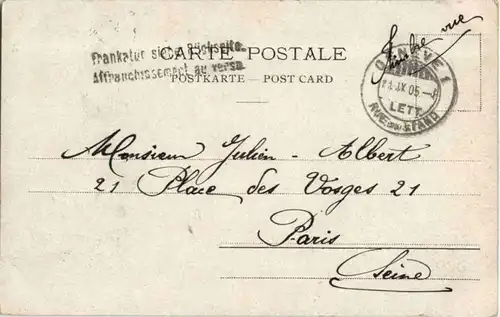 Frankatur siehe Rückseite.
Affranchissement au verso
CARTE POSTALE
POSTKARTE — POST CARD
Timbre vue
GENÈVE 1
11.IX.05.—8
LETT.
RUE DU STAND
Monsieur Julien - Albert
21 Place des Vosges 21
Paris
Seine